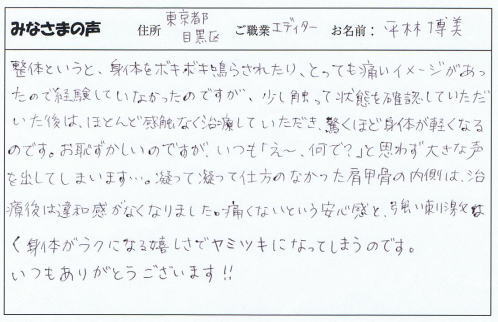 みなさまの声 住所 東京都目黒区 ご職業 エディター お名前： 平林博美
整体というと、身体をボキボキ鳴らされたり、とっても痛いイメージがあっ
たので経験していなかったのですが、少し触って状態を確認していただ
いた後は、ほとんど感触なく治療していただき、驚くほど身体が軽くなる
のです。お恥ずかしいのですが、いつも「え〜、何で?」と思わず大きな声
を出してしまいます…。凝って凝って仕方のなかった肩甲骨の内側は、治
療後は違和感がなくなりました。痛くないという安心感と、強い刺激はな
く身体がラクになる嬉しさでヤミツキになってしまうのです。
いつもありがとうございます!!